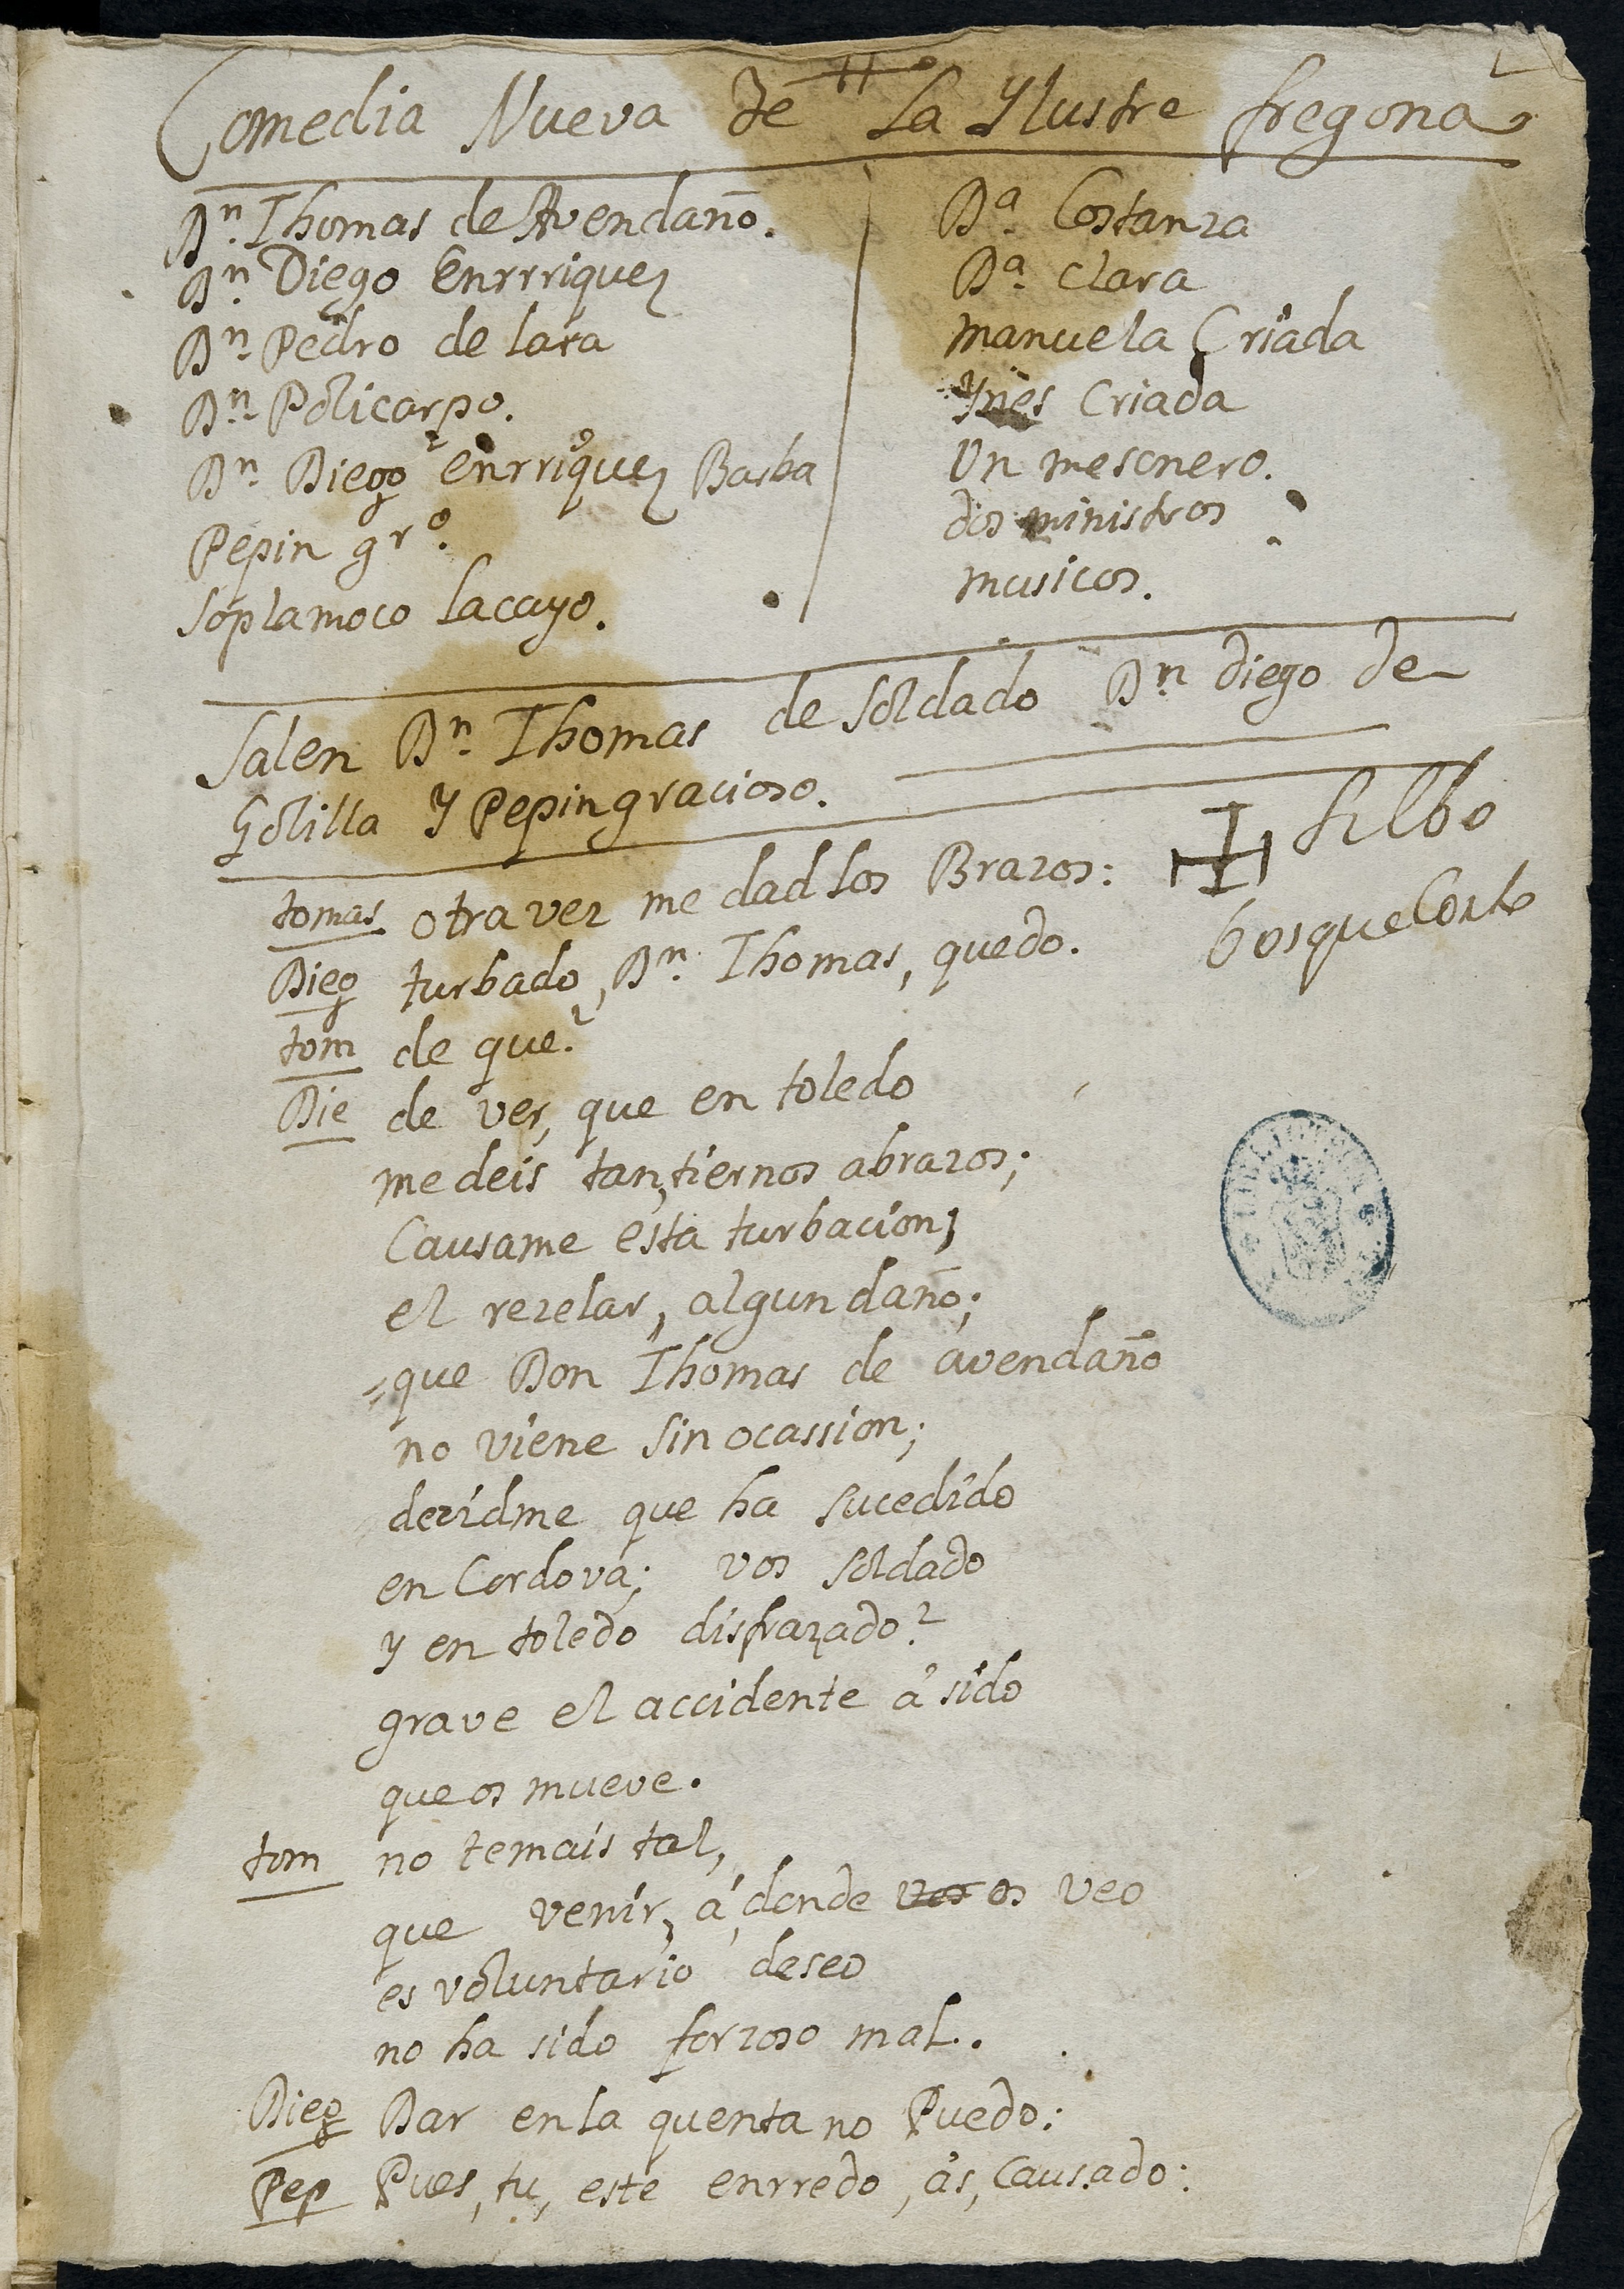 Comedia Nueva de la Ylustre fregona
Dn. Thomas de Avendaño.
Dn. Diego Enrrriquez
Dn. Pedro de lara
Dn. Policarpo.
Dn Diego enrriquez Barba
Pepin gro.
Soplamoco lacayo.
Da. Costanza
Da. Clara
manuela Criada
Ynes Criada
Un mesonero.
dos ministros
musicos.
Salen Dn. Thomas de soldado Dn diego de
Golilla Y Pepin gracioso.
tomas otra vez me dad los Brazos:
silbo
Dieg turbado, Dn. Thomas, quedo.
bosque Corto
tom de que?
Die de ver, que en toledo
me deis tan, tiernos abrazos;
Causame esta turbacion,
el rezelar, algun daño;
que Don Thomas de avendaño
no viene sin ocassion;
dezidme que ha sucedido
en Cordova; vos soldado
y en toledo disfrazado?
grave el accidente á sido
que os mueve.
tom no temais tal,
que venir, á, donde vos os veo
es voluntario deseo
no ha sido forzoso mal.
Dieg Dar en la quenta no Puedo:
Pep Pues, tu, este enrredo, ás, Causado: